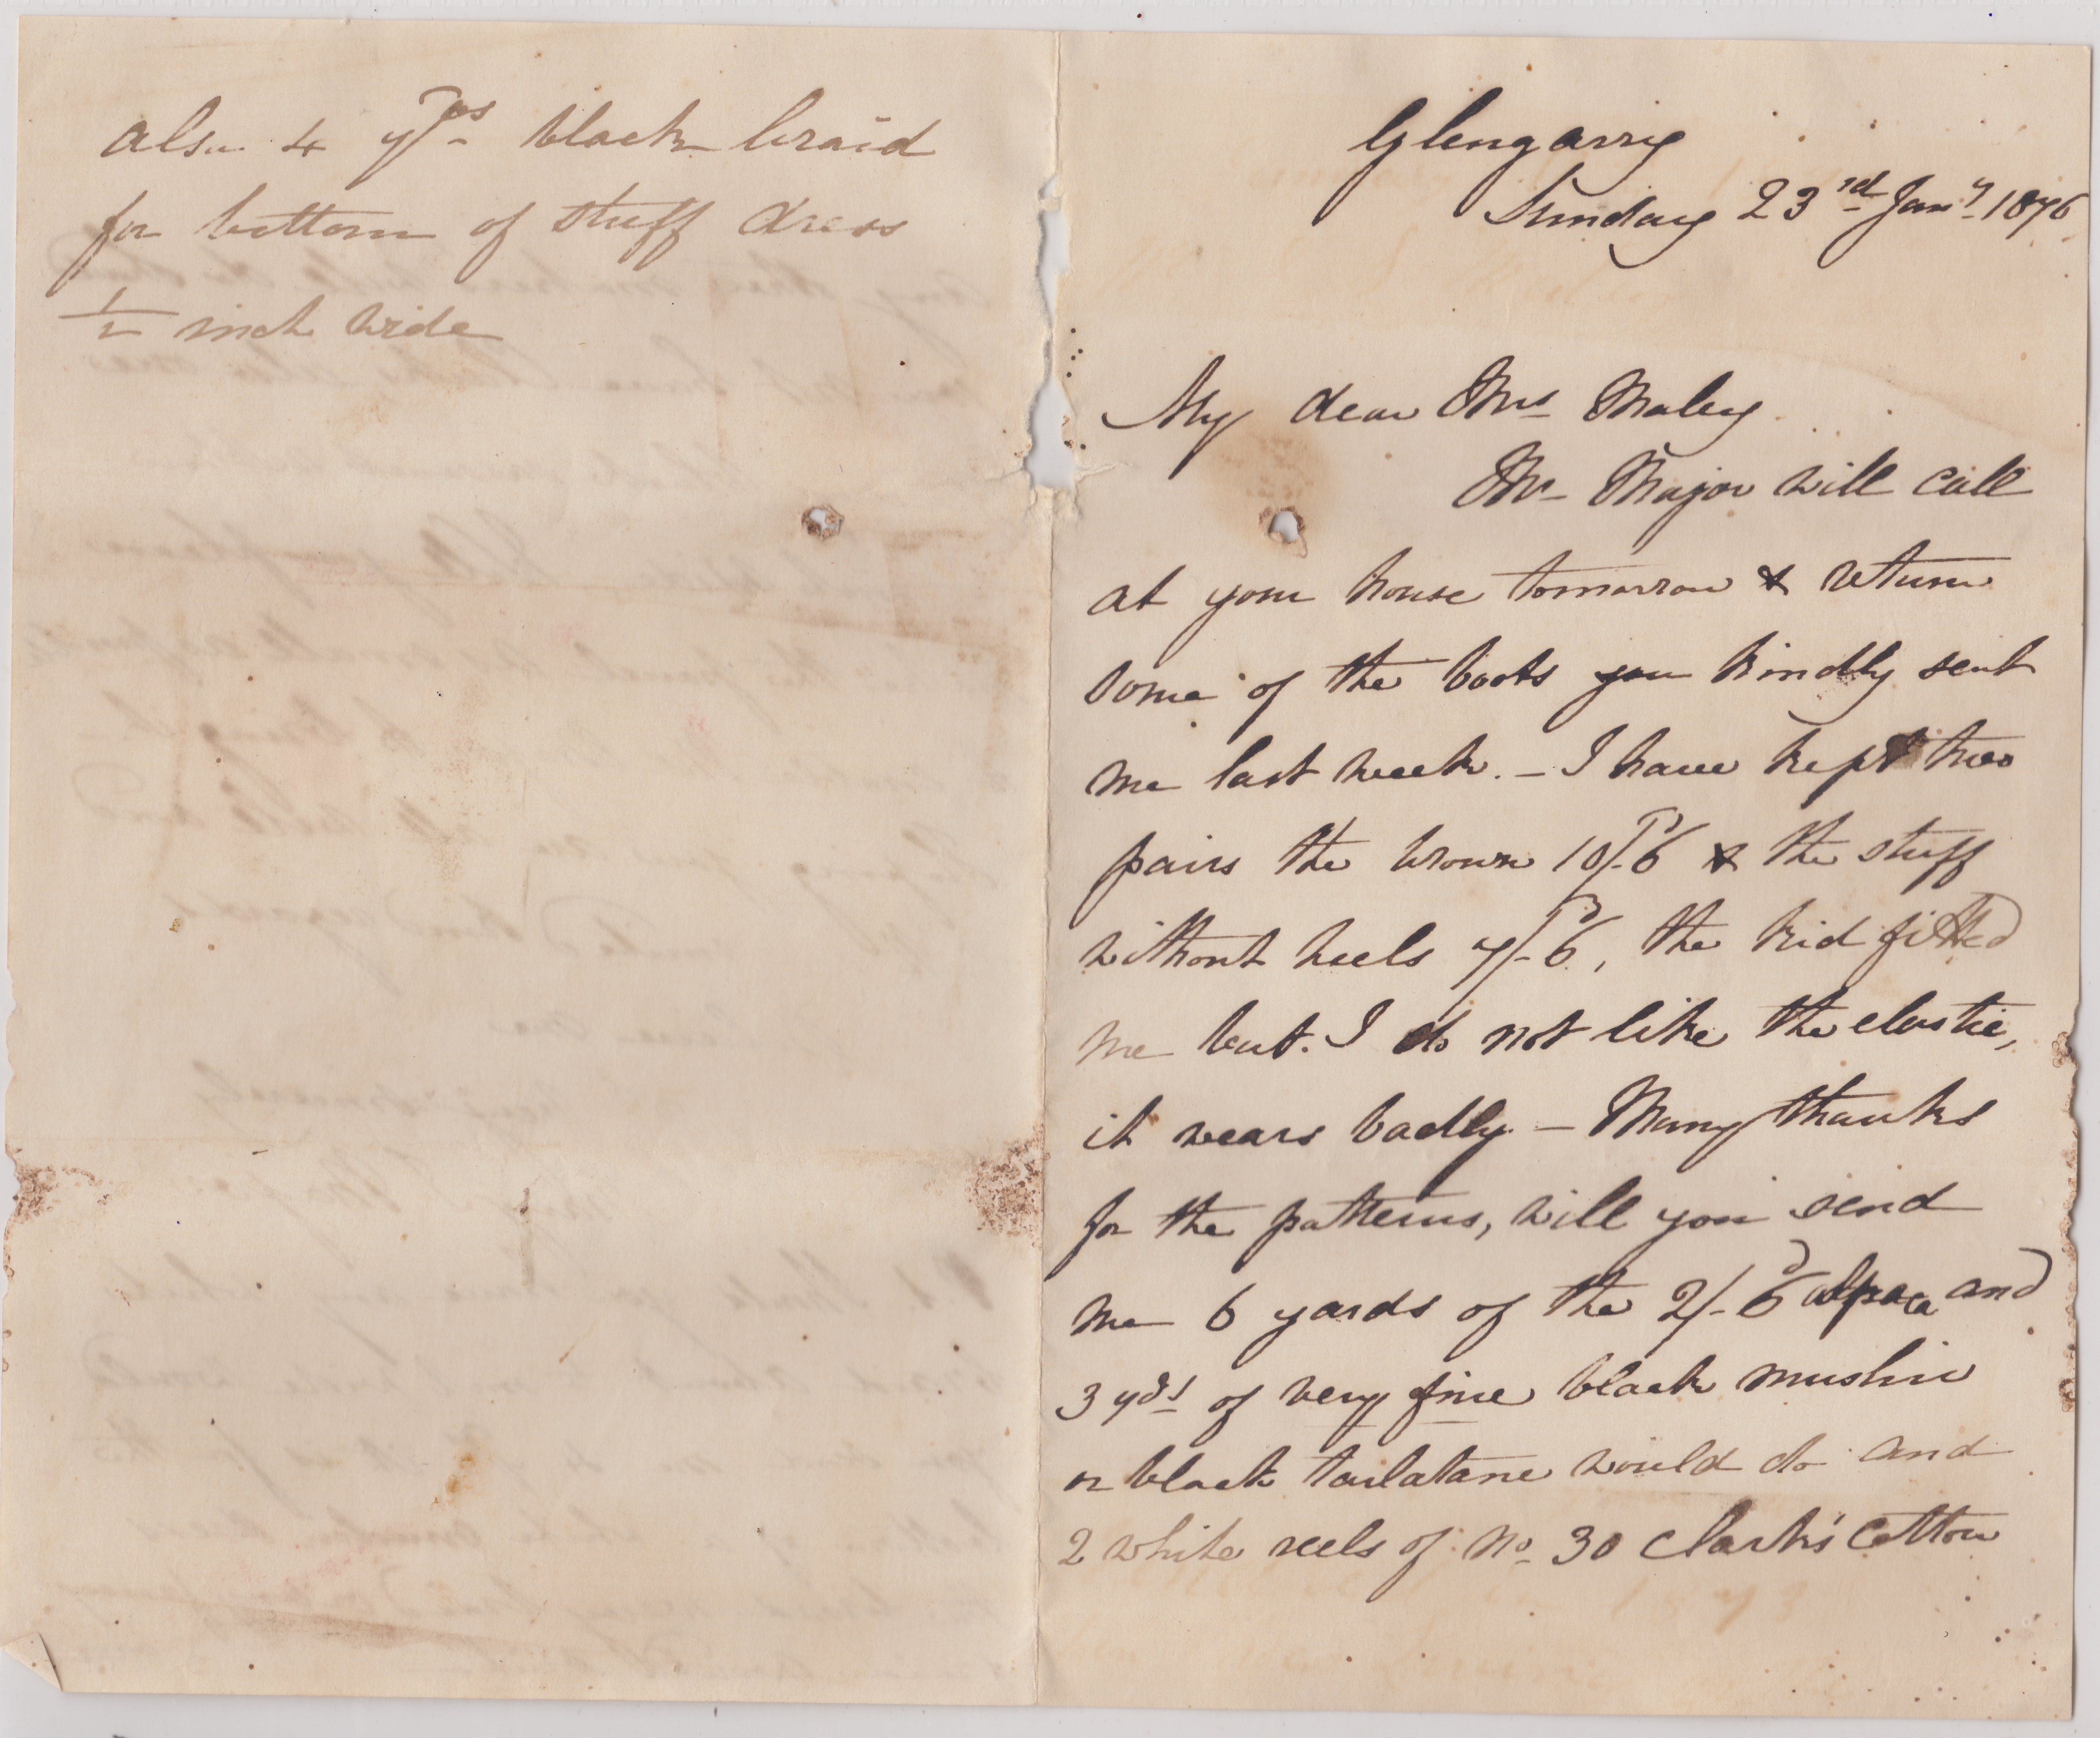 also 4 yds black braid
for bottom of stuff dress
1/2 inch wide
Glengarry
Sunday 23rd Jany 1876
My dear Mrs Maley
Mr Major will call
at your house tomorrow & return
some of the boots you kindly sent
me last week. – I have kept two
pairs the brown 10/-6d & the stuff
without heels 7/-6d, the kid fitted
me but I do not like the elastic,
it wears badly – Many thanks
for the patterns, will you send
me 6 yards of the 2/-6d alpaca and
3 yds of very fine black muslin
or black tarlatane would do and
2 white reels of No 30 Clark's Cotton